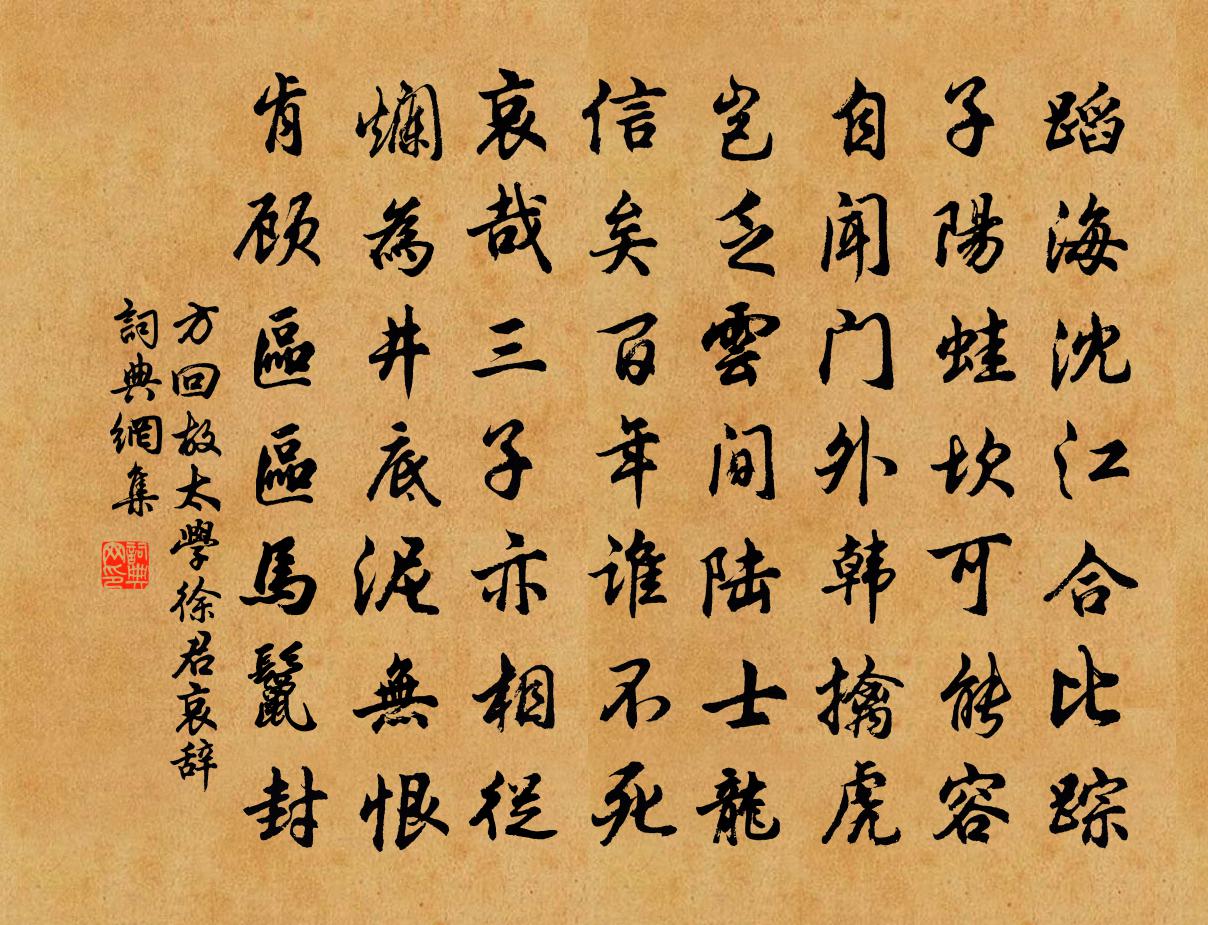 蹈海沈江合比踪
子陽蛙坎可能容
自闻门外韩擒虎
岂乏雲间陆士龍
信矣百年谁不死
哀哉三子亦相從
爛為井底泥無恨
肯顾區區馬鬣封
方回故太學徐君哀辞
詞典網集
詞典网印